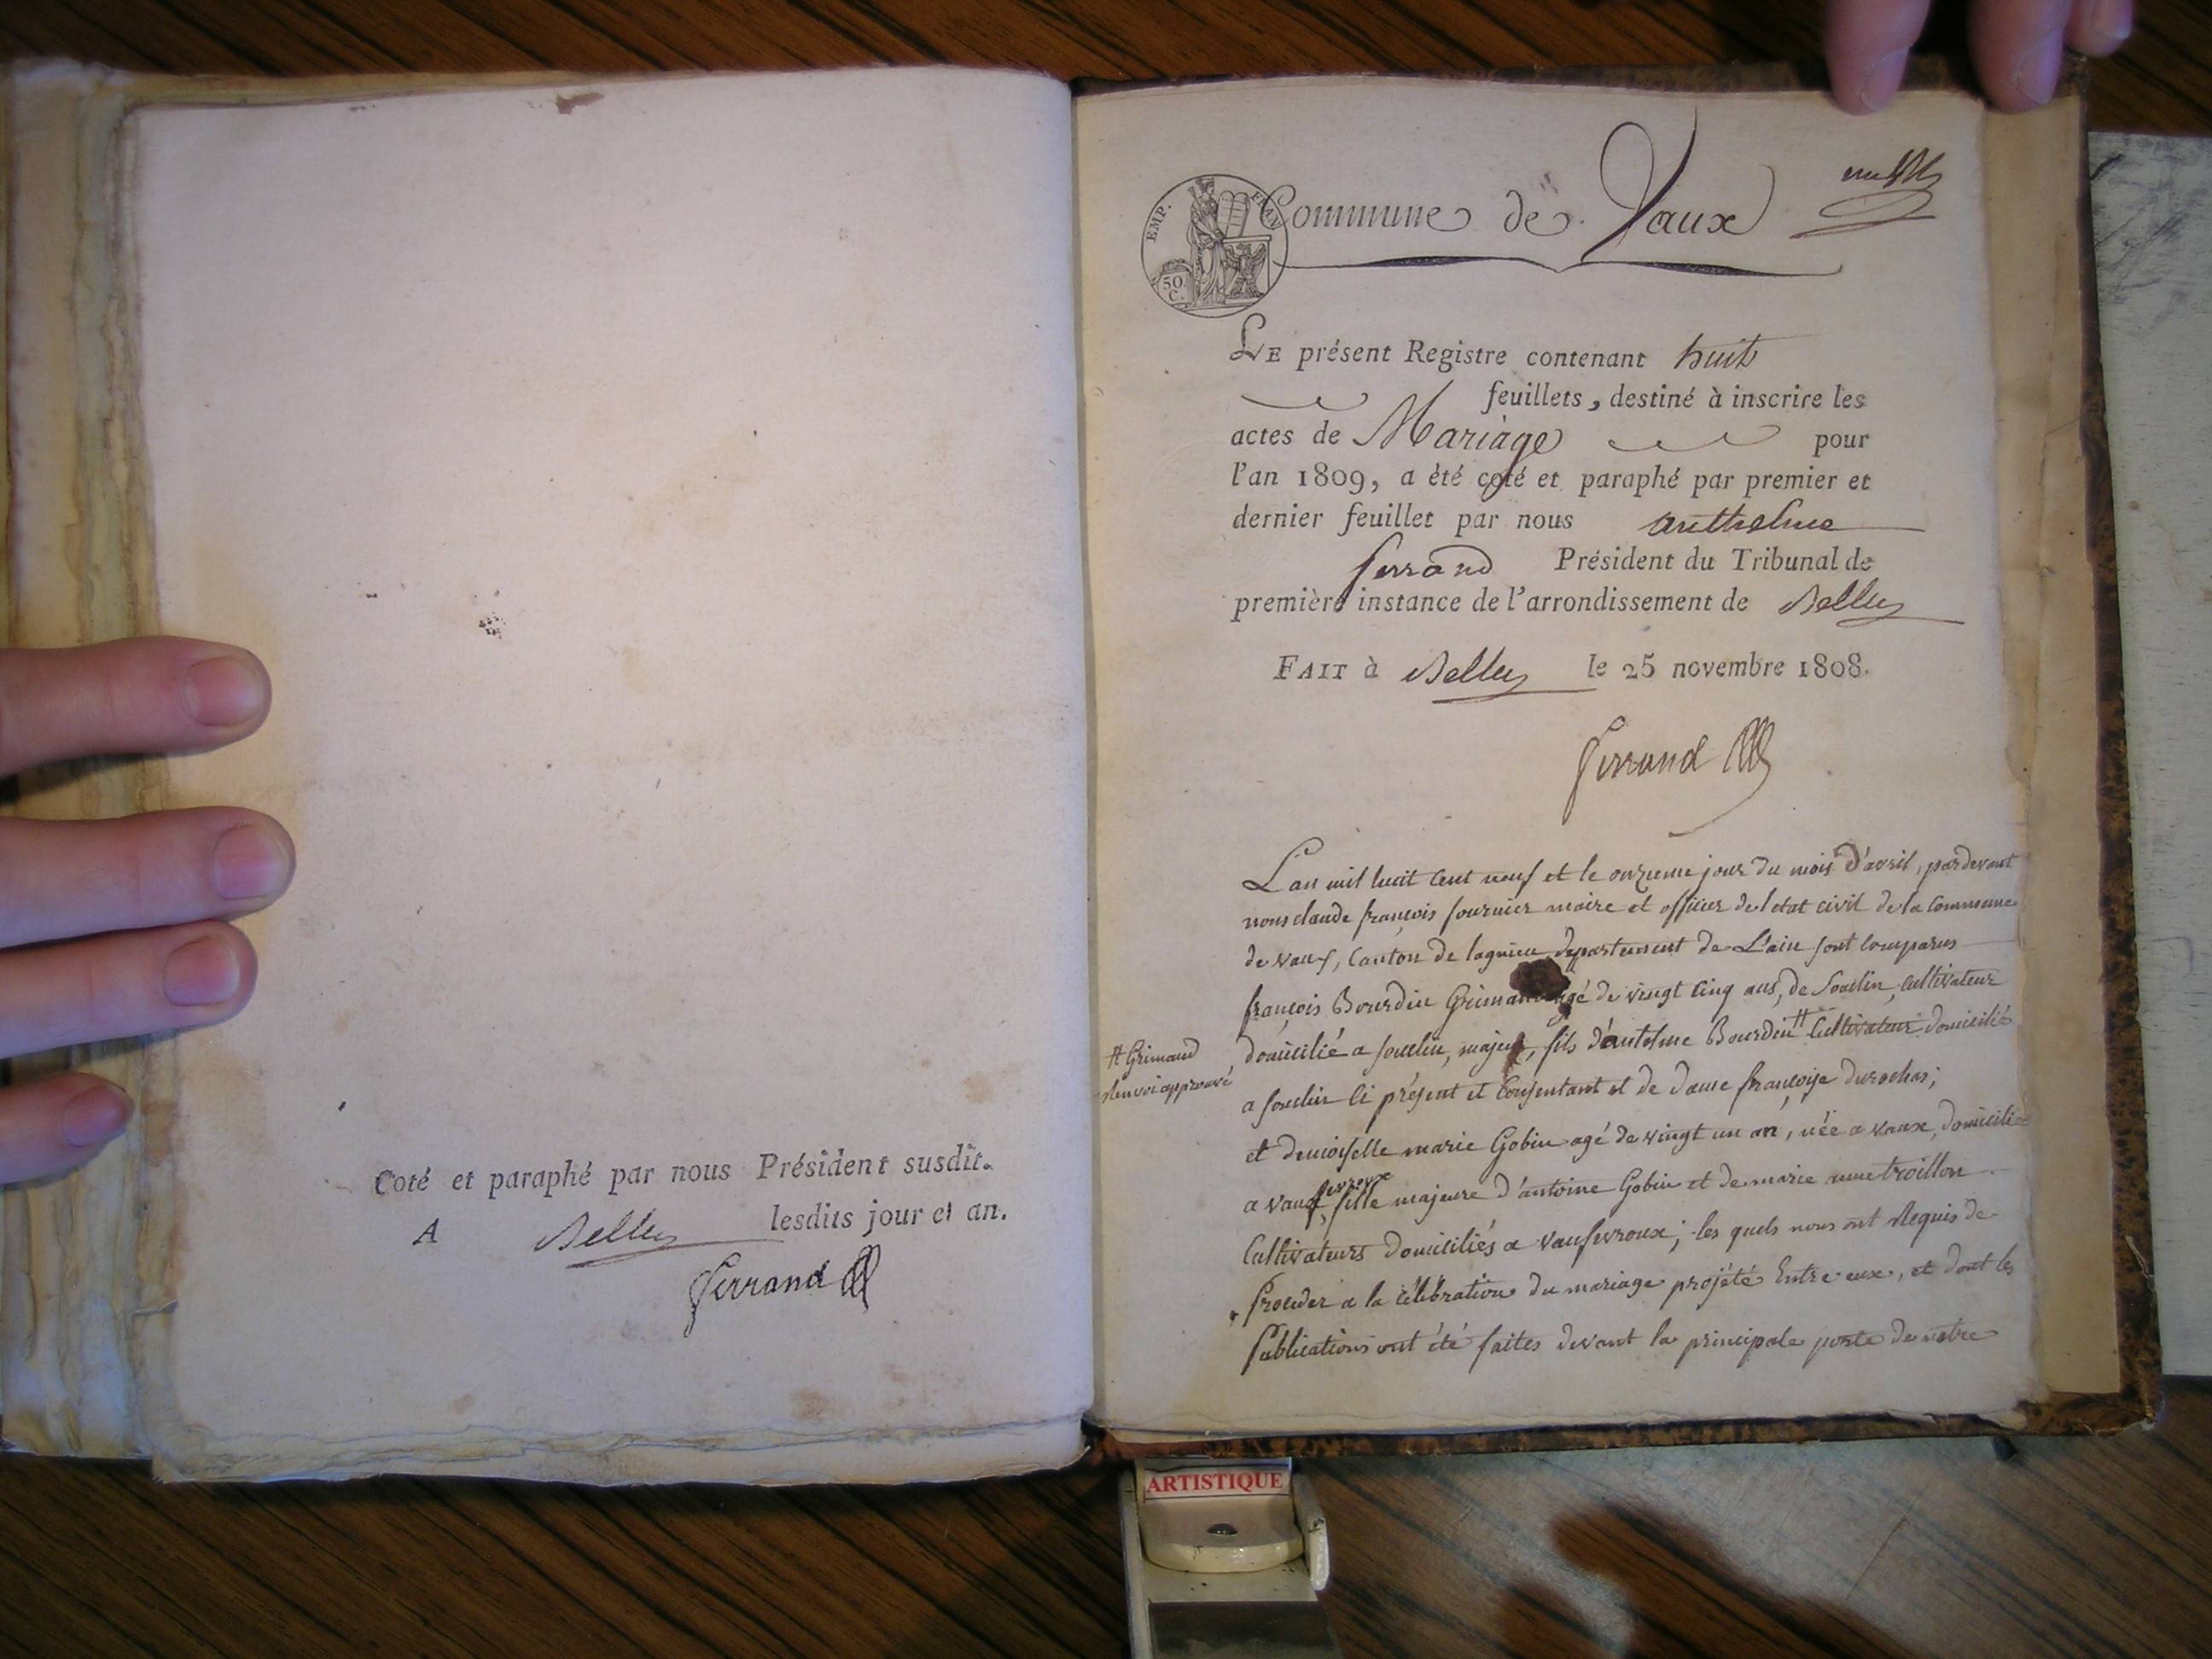 Coté et paraphé par nous Président susdit.
A Belley lesdits jour et an.
Ferrand
EMP. FRAN.
50.
C.
Commune de Vaux
LE présent Registre contenant huit
feuillets, destiné à inscrire les
actes de Mariage pour
l'an 1809, a été coté et paraphé par premier et
dernier feuillet par nous anthelme
ferrand Président du Tribunal de
première instance de l'arrondissement de Belley
FAIT à Belley le 25 novembre 1808.
Ferrand
L'an mil huit cent neuf et le onzieme jour du mois d'avril, pardevant
nous claude françois fournier maire et officier de l'etat civil de la Commune
de vaux, Canton de lagnieu departement de L'ain sont comparus
françois Bourdin Grimand agé de vingt cinq ans, de Souclin, Cultivateur
domicilié a souclin, majeur, fils d'antelme Bourdin # Cultivateur domicilié
# Grimand
Renvoi approuvé
a souclin ci présent et Consentant et de dame françoise durochas;
et demoiselle marie Gobin agé de vingt un an, née a vaux, domiciliée
a vaux fevroux, fille majeure d'antoine Gobin et de marie anne troillon
Cultivateurs domiciliés a vaufevroux; les quels nous ont Requis de
Proceder a la célébration du mariage projété Entre eux, et dont les
Publications ont été faites devant la principale porte de notre
ARTISTIQUE